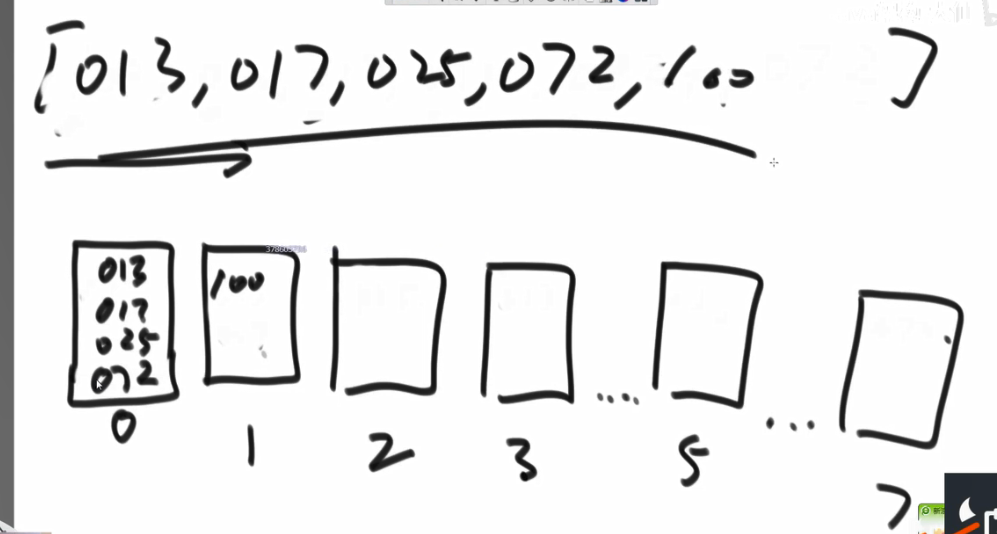 [013, 017, 025, 072, 100 ]
013 100
017
025
072
0 1 2 3 .... 5 ... 7